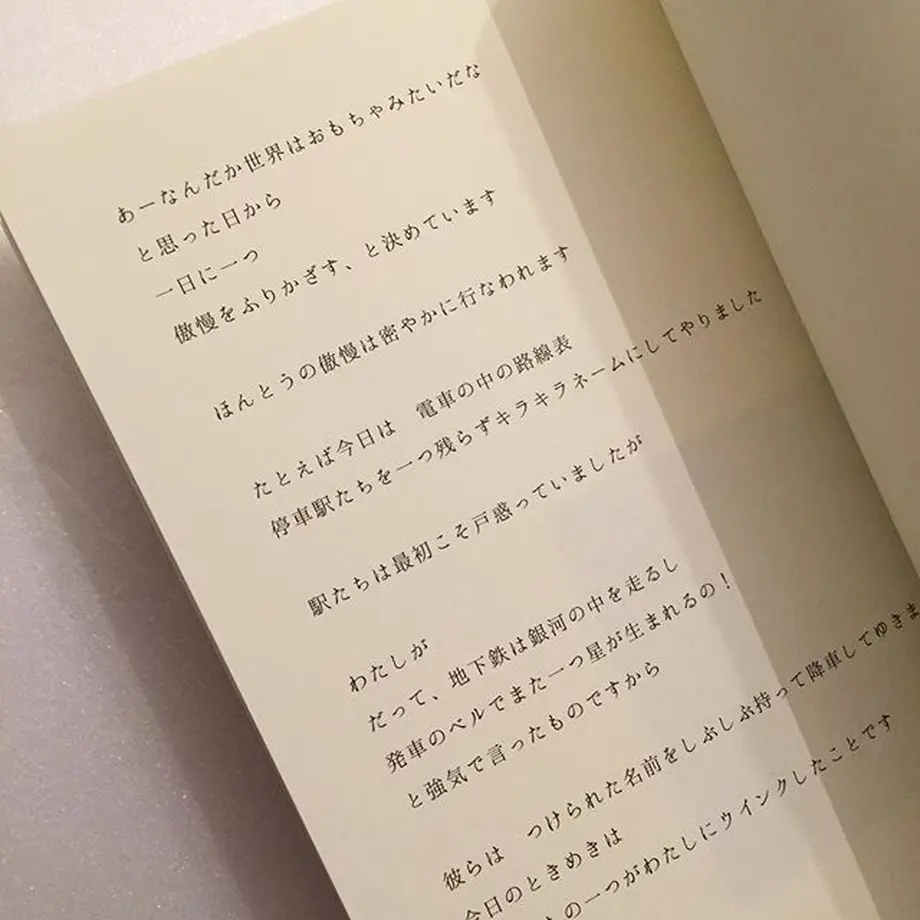 あーなんだか世界はおもちゃみたいだな
と思った日から
一日に一つ
傲慢をふりかざす、と決めています
ほんとうの傲慢は密やかに行なわれます
たとえば今日は　電車の中の路線表
停車駅たちを一つ残らずキラキラネームにしてやりました
駅たちは最初こそ戸惑っていましたが
わたしが
だって、地下鉄は銀河の中を走るし
発車のベルでまた一つ星が生まれるの！
と強気で言ったものですから
彼らは　つけられた名前をしぶしぶ持って降車してゆきま
今日のときめきは
の一つがわたしにウインクしたことです